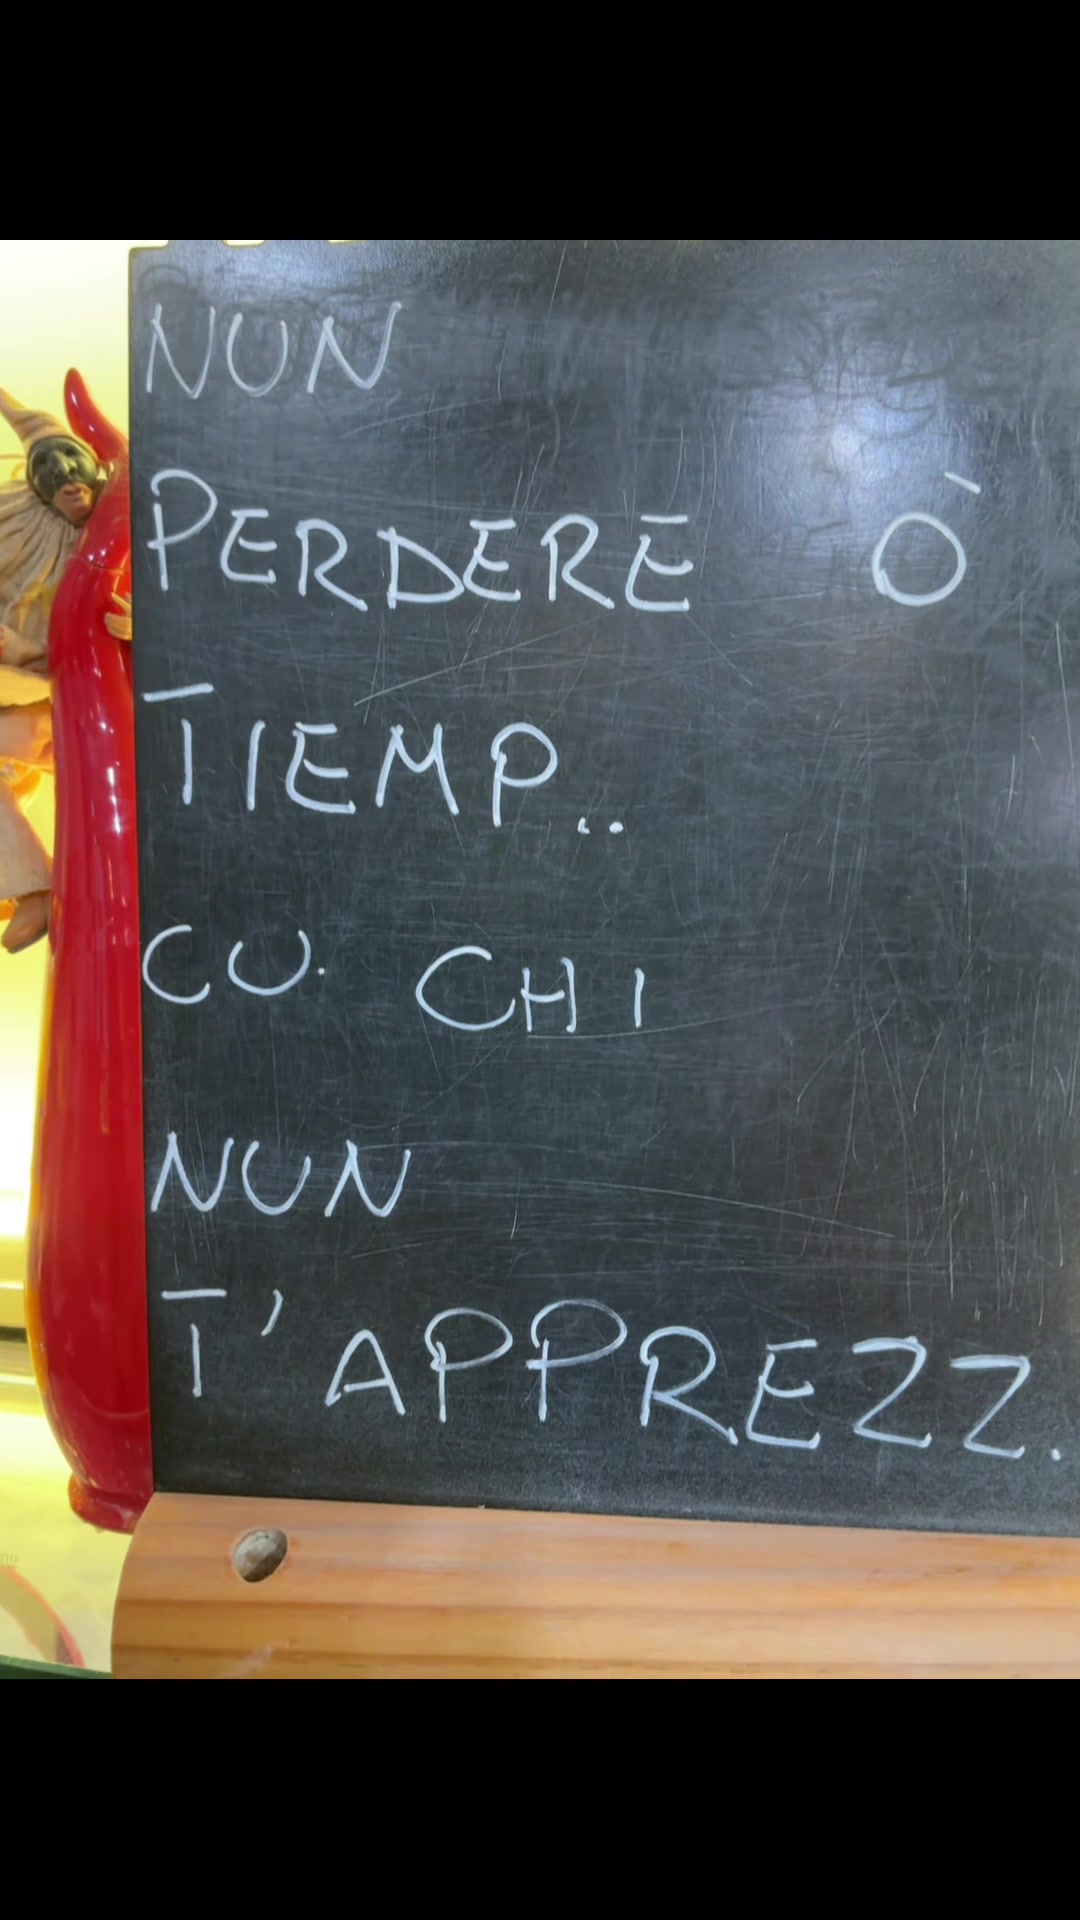 NUN
PERDERE Ò
TIEMP..
CU. CHI
NUN
T'APPREZZ.